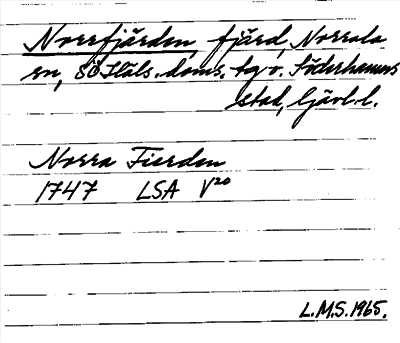 Norrfjärden, fjärd, Norrala
sn, SÖHäls. doms. tg o. Söderhamns
stad, Gävl.l.
Norra Fierden
1747 LSA V²⁰
L.M.S. 1965.